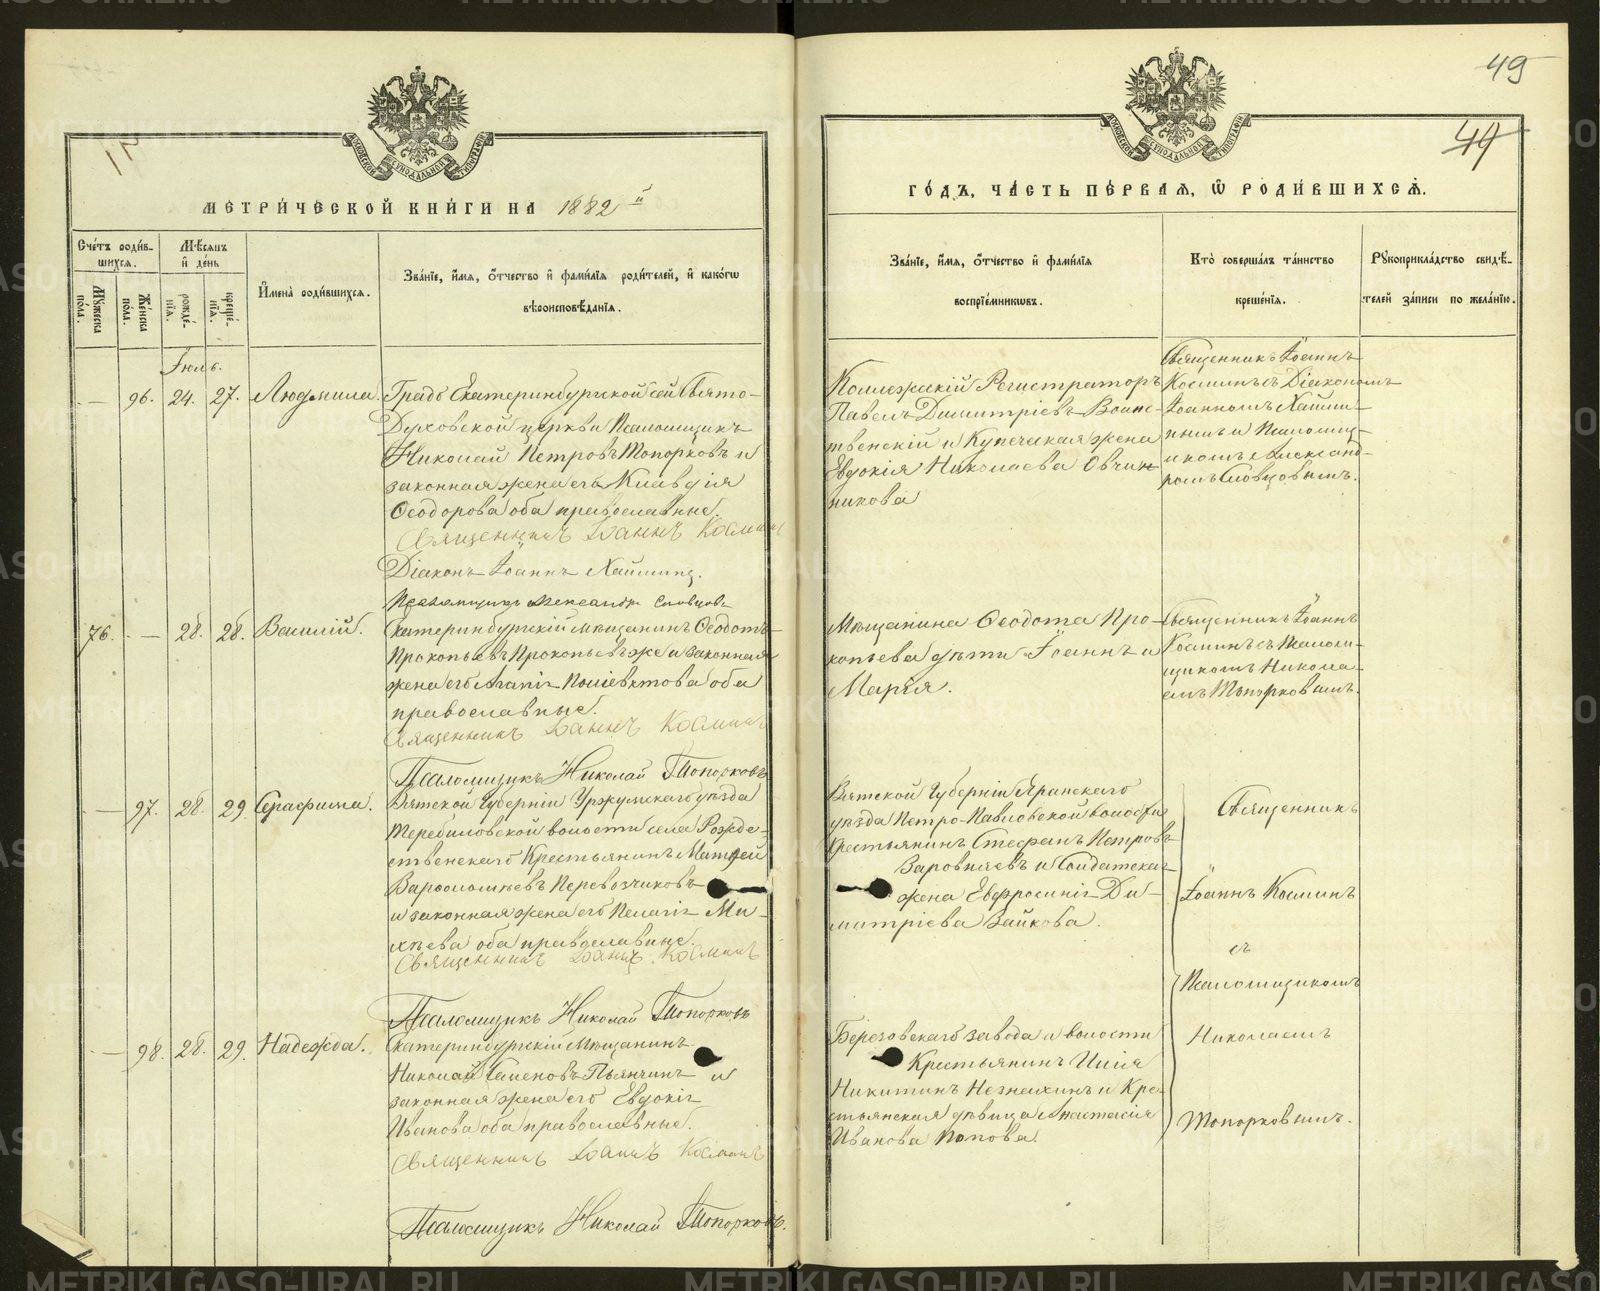 49
44
МЕТРИ́ЧЕСКОЙ КНИ́ГИ НА 1882й
ГО́ДЪ, ЧА́СТЬ ПЕ́РВАЯ, Ѿ РОДИ́ВШИХСЯ.
Сче́тъ роди́в-
шихся.
Му́жеска по́ла.
Же́нска по́ла.
Мѣ́сяцъ и҆ де́нь
рожде́нїя.
креще́нїя.
И҆мена̀ роди́вшихся.
Зва́нїе, и҆́мя, о҆́тчество и҆ фами́лїя роди́телей, и҆ како́гѡ
вѣроисповѣ́данїя.
Зва́нїе, и҆́мя, о҆́тчество и҆ фами́лїя
воспрїе́мникѡвъ.
Кто̀ соверша́лъ та́инство
креще́нїя.
Рꙋкоприкла́дство свидѣ́-
телей за́писи по жела́нїю.
Іюль.
— 96. 24. 27. Людмила.
Градо Екатеринбургской сей Свято-
Духовской церкви Псаломщикъ
Николай Петровъ Топорковъ и
законная жена его Клавдія
Ѳеодорова оба православные.
Священникъ Іоаннъ Косминъ
Діаконъ Іоаннъ
Псаломщикъ Александръ Словцовъ
Коллежскій Регистраторъ
Павелъ Димитріевъ
и Купеческая жена
Евдокія Николаева Овчин-
никова
Священникъ Іоаннъ
Косминъ съ Діакономъ
Іоанномъ
и Псаломщ-
икомъ Александ-
ромъ Словцовымъ.
76. — 28. 28. Василій.
Екатеринбургскій мѣщанинъ Ѳеодотъ
Прокопьевъ Прокопьевъ же и законная
жена его Агапія Поліевктова оба
православные.
Священникъ Іоаннъ Косминъ
Псаломщикъ Николай Топорковъ
Мѣщанина Ѳеодота Про-
копьева дѣти Іоаннъ и
Марія.
Священникъ Іоаннъ
Косминъ съ Псалом-
щикомъ Никола-
емъ Топорковымъ.
— 97. 28. 29. Серафима.
Вятской Губерніи Уржумскаго уѣзда
Теребиловской волости села Рожде-
ственскаго Крестьянинъ Матѳей
Варѳоломѣевъ Перевозчиковъ
и законная жена его Пелагія Ми-
хѣева оба православные.
Священникъ Іоаннъ Косминъ
Псаломщикъ Николай Топорковъ
Вятской Губерніи Яранскаго
уѣзда Петро-Павловской волости
Крестьянинъ Стефанъ Петровъ
и Солдатская
жена Евфросинія Ди-
митріева Зайкова.
Священникъ
Іоаннъ Косминъ
съ
Псаломщикомъ
Николаемъ
Топорковымъ.
— 98. 28. 29. Надежда.
Екатеринбургскій Мѣщанинъ
Николай Семеновъ Пьянчинъ и
законная жена его Евдокія
Иванова оба православные.
Священникъ Іоаннъ Косминъ
Псаломщикъ Николай Топорковъ.
Березовскаго завода и волости
Крестьянинъ Илія
Никитинъ и Кре-
стьянская дѣвица Анастасія
Иванова Попова.
METRIKI.GASO-URAL.RU